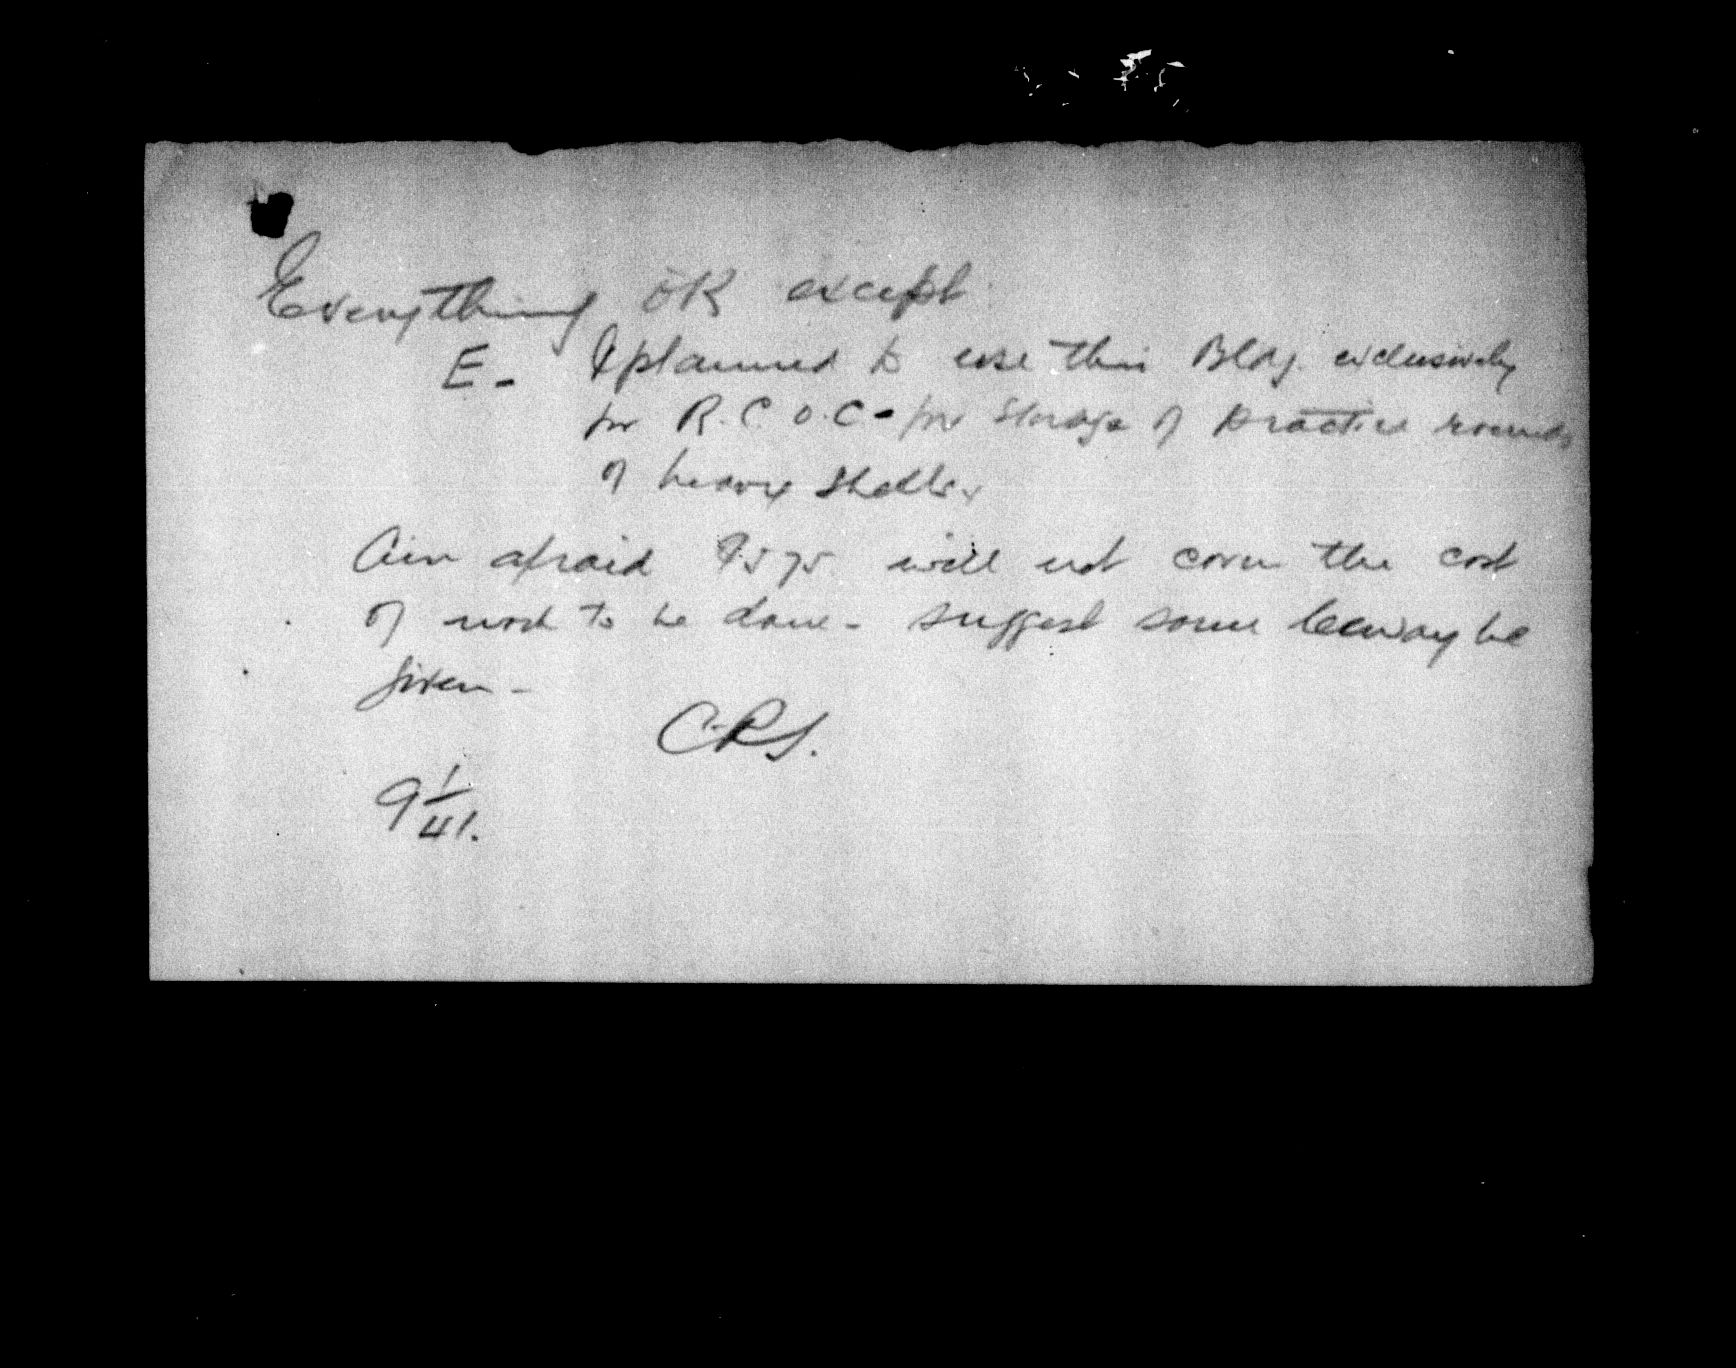 Everything OK except
E - I planned to use this Bldg. exclusively
for R.C.O.C - for storage of practice rounds
of heavy shells.
Am afraid 9575 will not cover the cost
of work to be done - suggest some leeway be
given -
C.R.S.
9 1/41.